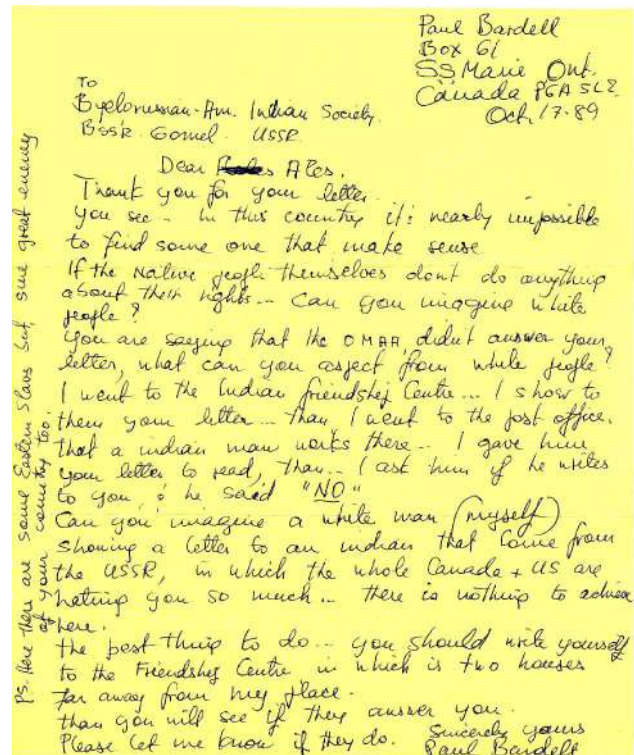 Paul Bardell
Box 61
SS Marie Ont.
Canada P6A 5L2
Oct, 17-89
To
Byelorussian-Am. Indian Society.
BSSR. Gomel. USSR.
Dear Ales.
Thank you for your letter.
You see - in this country it's nearly impossible
to find some one that make sense
If the Native people themselves dont do anything
about their rights... Can you imagine white
people?
You are saying that the OMAA didn't answer your
letter, what can you aspect from white people?
I went to the Indian friendship Centre... I show to
them your letter... than, I went to the post office,
that a indian man works there... I gave him
your letter to read, than... I ask him if he writes
to you, & he said "NO"
Can you imagine a white man (myself)
showing a letter to an indian that come from
the USSR, in which the whole Canada + US are
hating you so much... there is nothing to achieve
here.
the best thing to do... you should write yourself
to the Friendship Centre in which is two houses
far away from my place.
than you will see if they answer you.
Please let me know if they do.
Sincerely yours
Paul Bardell
PS. Here there are some Eastern Slavs but, sure great enemy
of your country too.